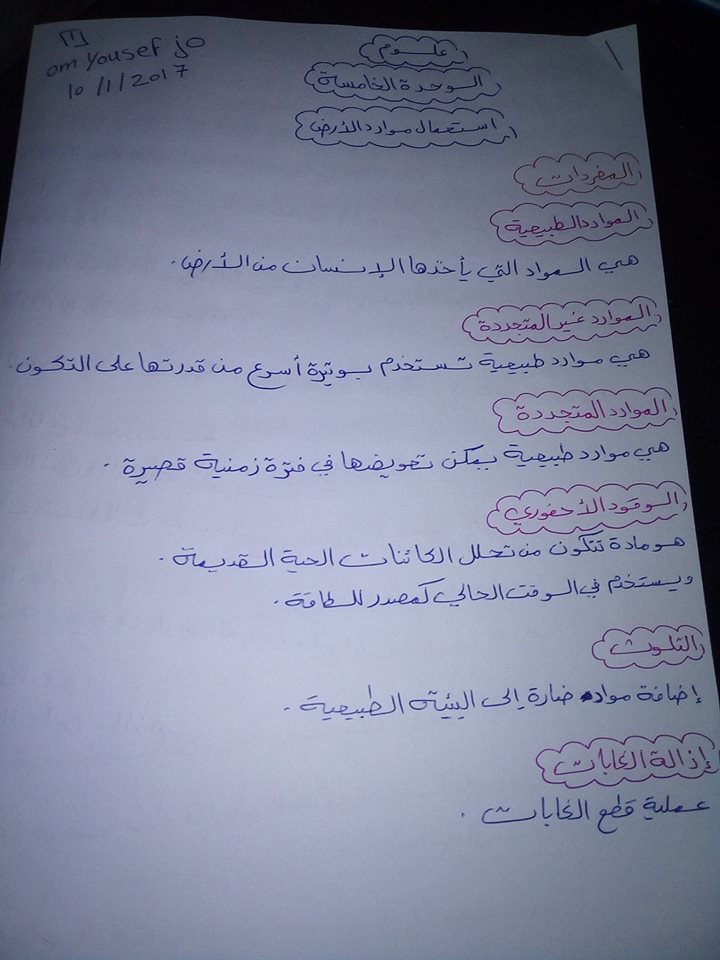 [1]
om Yousef jo
10/1/2017
علوم
الوحدة الخامسة
استعمال موارد الأرض
المفردات
الموارد الطبيعية
هي المواد التي يأخذها الإنسان من الأرض.
الموارد غير المتجددة
هي موارد طبيعية تستخدم بوتيرة أسرع من قدرتها على التكون.
الموارد المتجددة
هي موارد طبيعية يمكن تعويضها في فترة زمنية قصيرة.
الوقود الأحفوري
هو مادة تتكون من تحلل الكائنات الحية القديمة.
ويستخدم في الوقت الحالي كمصدر للطاقة.
التلوث
إضافة مواد ضارة إلى البيئة الطبيعية.
إزالة الغابات
عملية قطع الغابات.